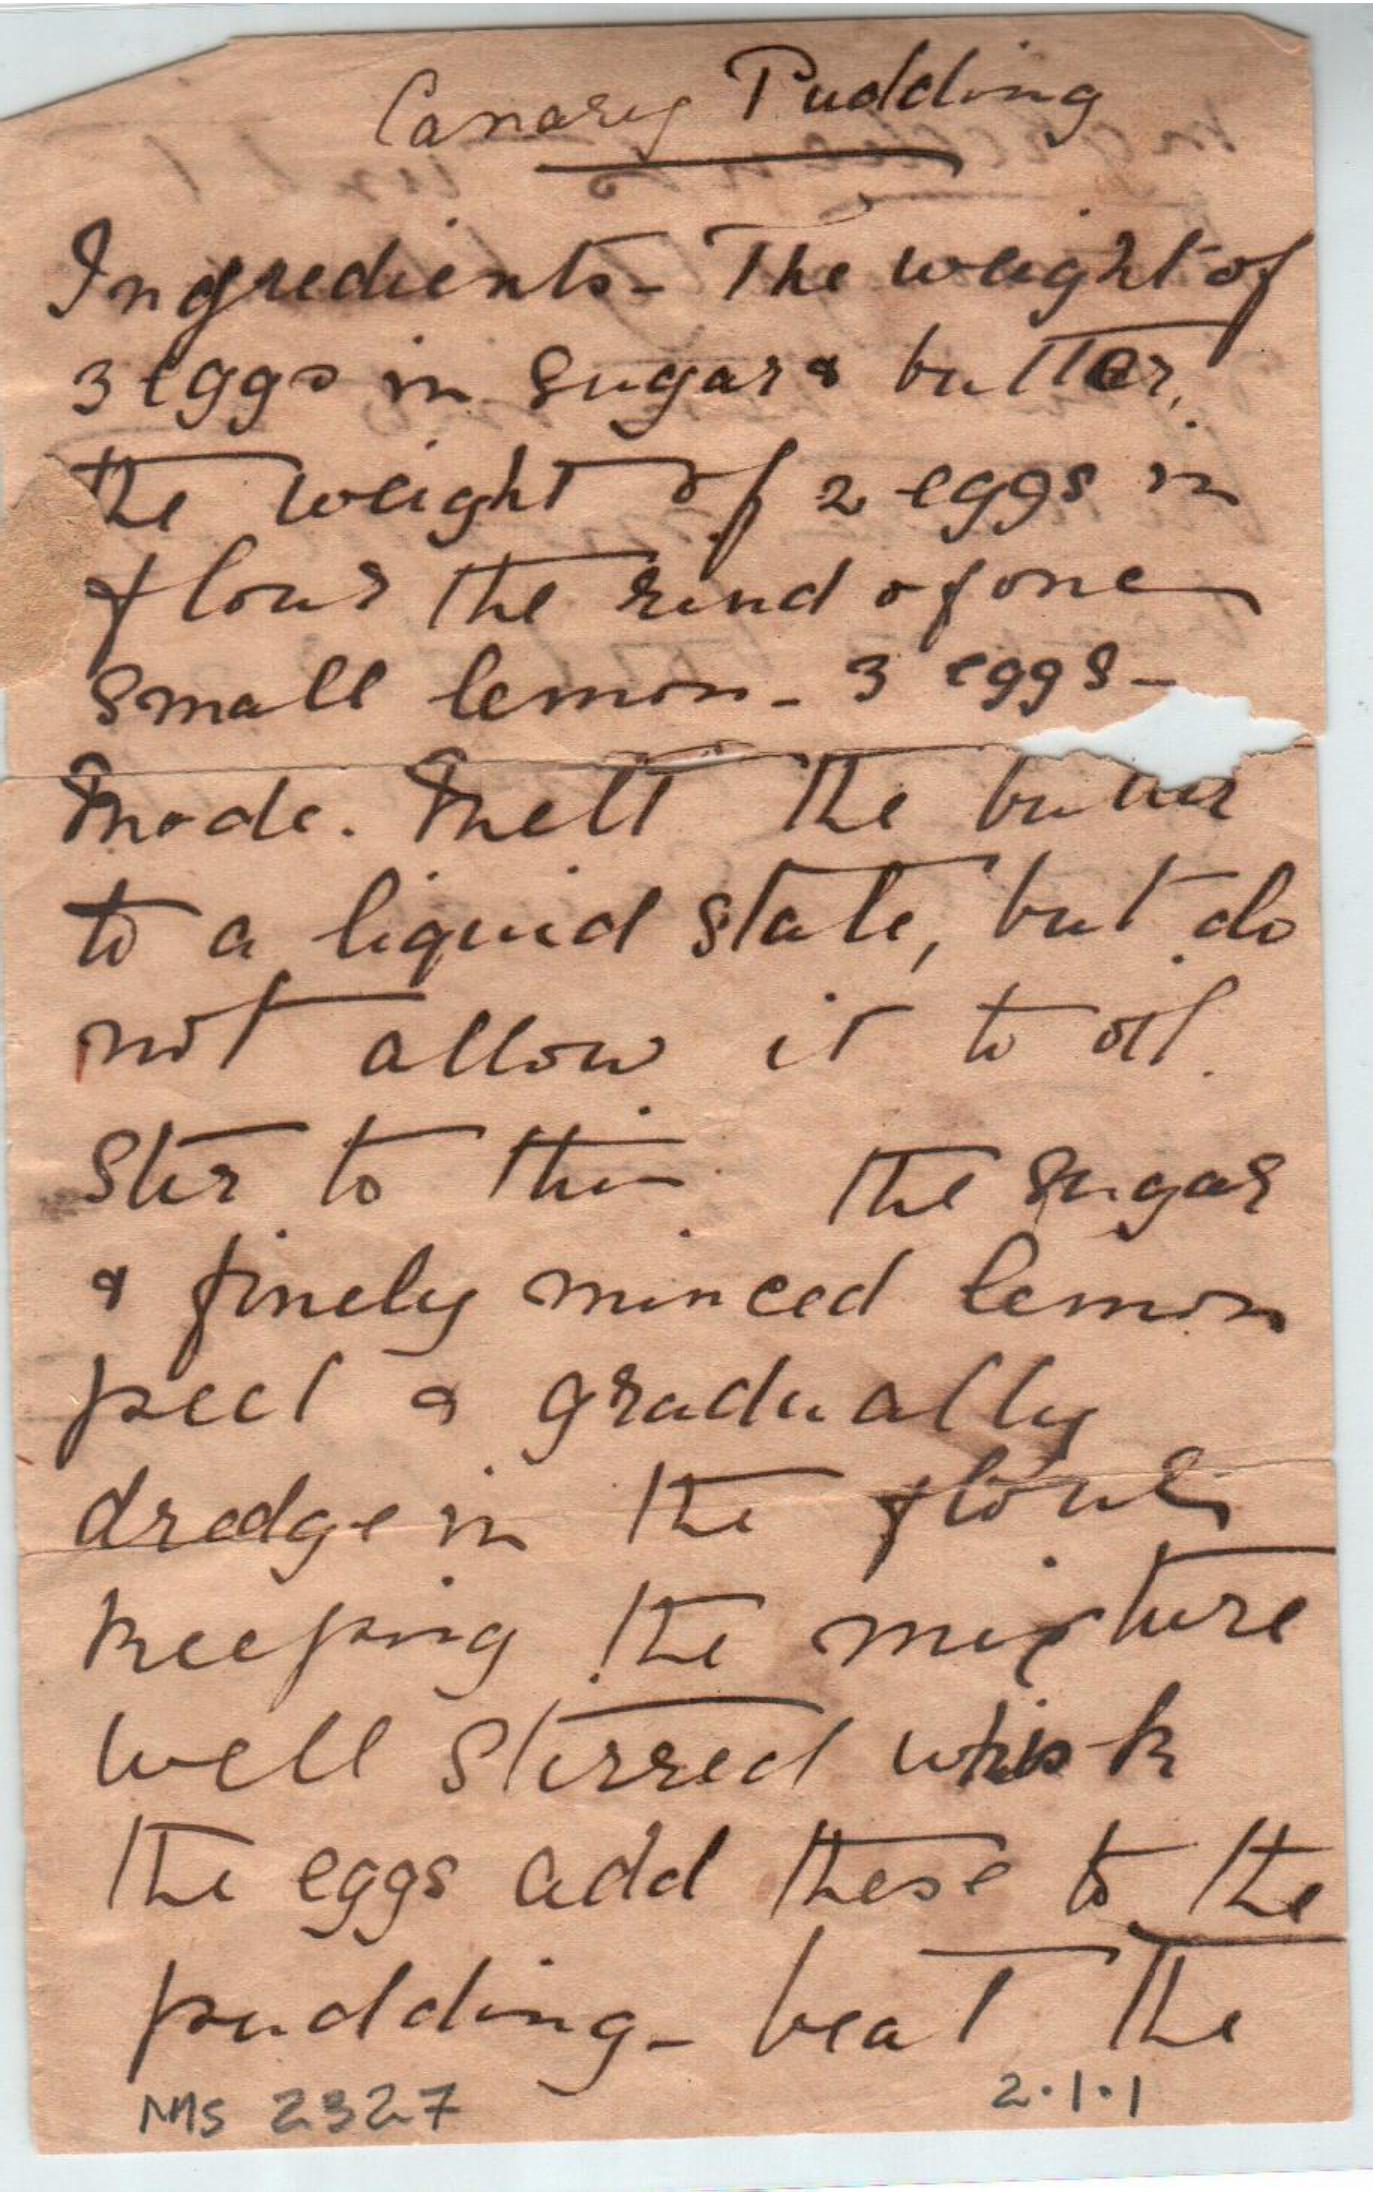 Canary Pudding
Ingredients - The weight of
3 eggs in sugar & butter,
the weight of 2 eggs in
flour the rind of one
small lemon - 3 eggs -
Mode. Melt the butter
to a liquid state, but do
not allow it to oil.
Stir to this the sugar
& finely minced lemon
peel & gradually
dredge in the flour
keeping the mixture
well stirred whisk
the eggs add these to the
pudding - beat the
MS 2327 2.1.1